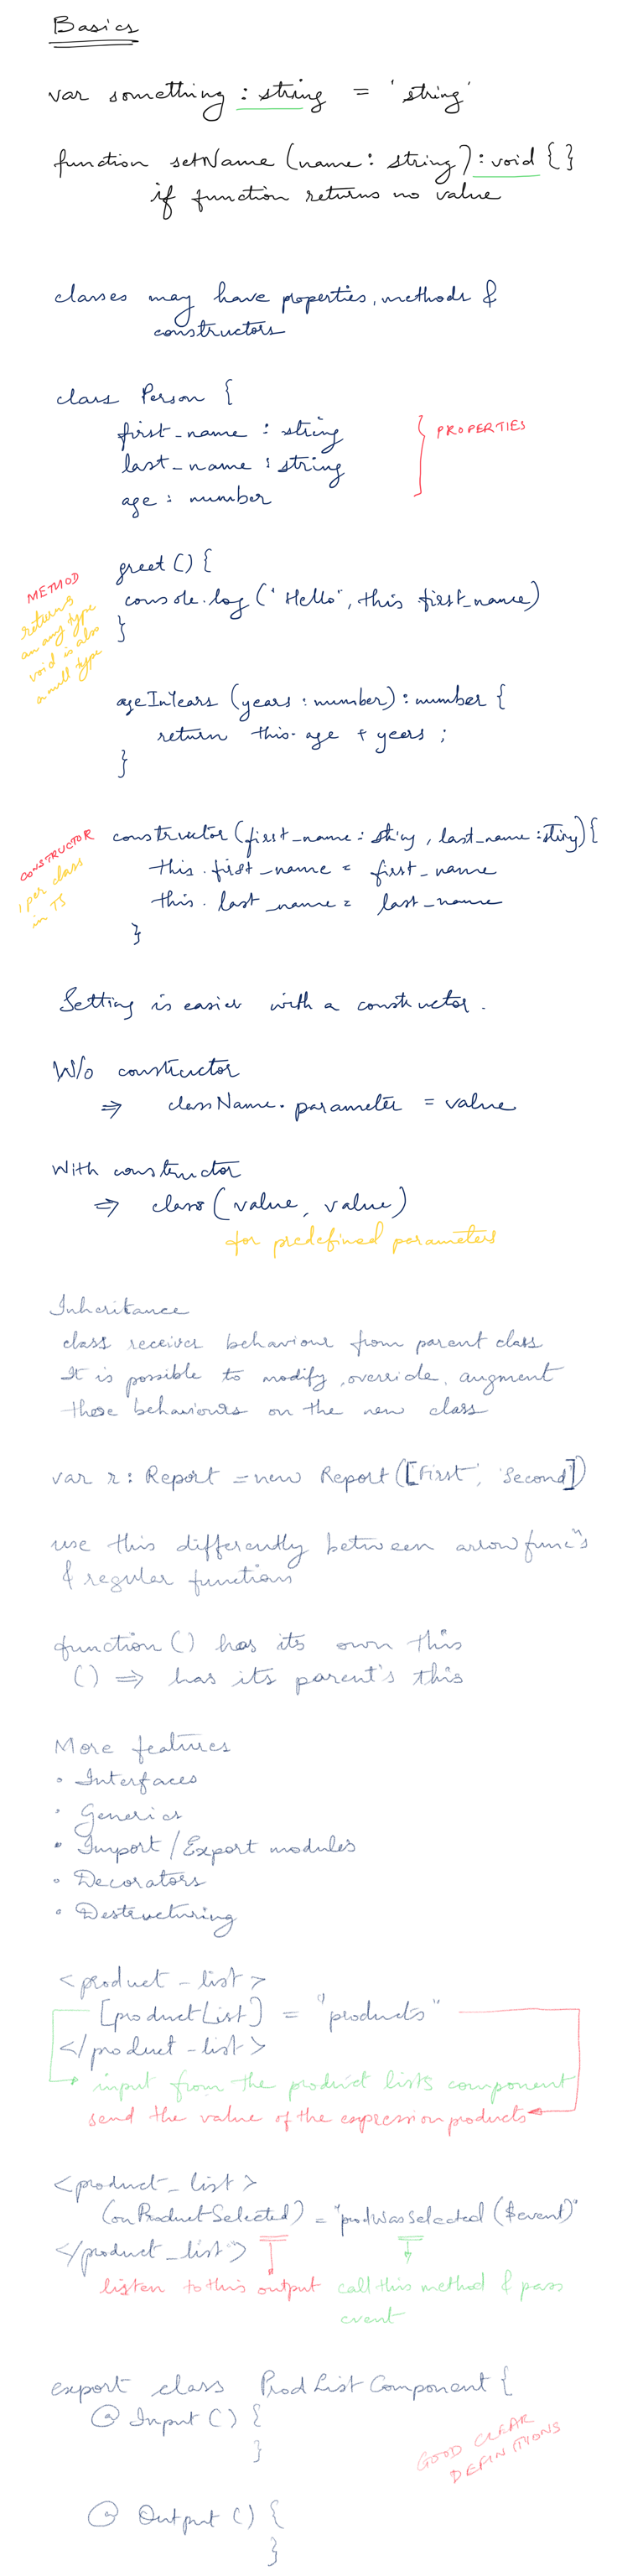 Basics
var something : string = 'string'
function setName (name : string) : void { }
if function returns no value
classes may have properties, methods &
constructors
class Person {
first_name : string
last_name : string
age : number
} PROPERTIES
METHOD
returns
an any type
void is also
a null type
greet () {
console.log ("Hello", this first_name)
}
ageInYears (years : number) : number {
return this.age + years ;
}
CONSTRUCTOR
1 per class
in TS
constructor (first_name : string , last_name : string) {
this.first_name = first_name
this.last_name = last_name
}
Setting is easier with a constructor.
W/o constructor
⇒ className.parameter = value
With constructor
⇒ class (value, value)
for predefined parameters
Inheritance
class receives behaviour from parent class
It is possible to modify, override, augment
these behaviours on the new class
var r : Report = new Report (['First', 'Second'])
use this differently between arrow func"s
& regular function
function () has its own this
() ⇒ has its parent's this
More features
• Interfaces
• Generics
• Import / Export modules
• Decorators
• Destructuring
<product-list>
[productList] = "products"
</product-list>
input from the product lists component
send the value of the expression products
<product_list>
(onProductSelected) = "prodWasSelected ($event)"
</product_list>
listen to this output call this method & pass
event
export class ProdListComponent {
@ Input () {
}
GOOD CLEAR
DEFINITIONS
@ Output () {
}